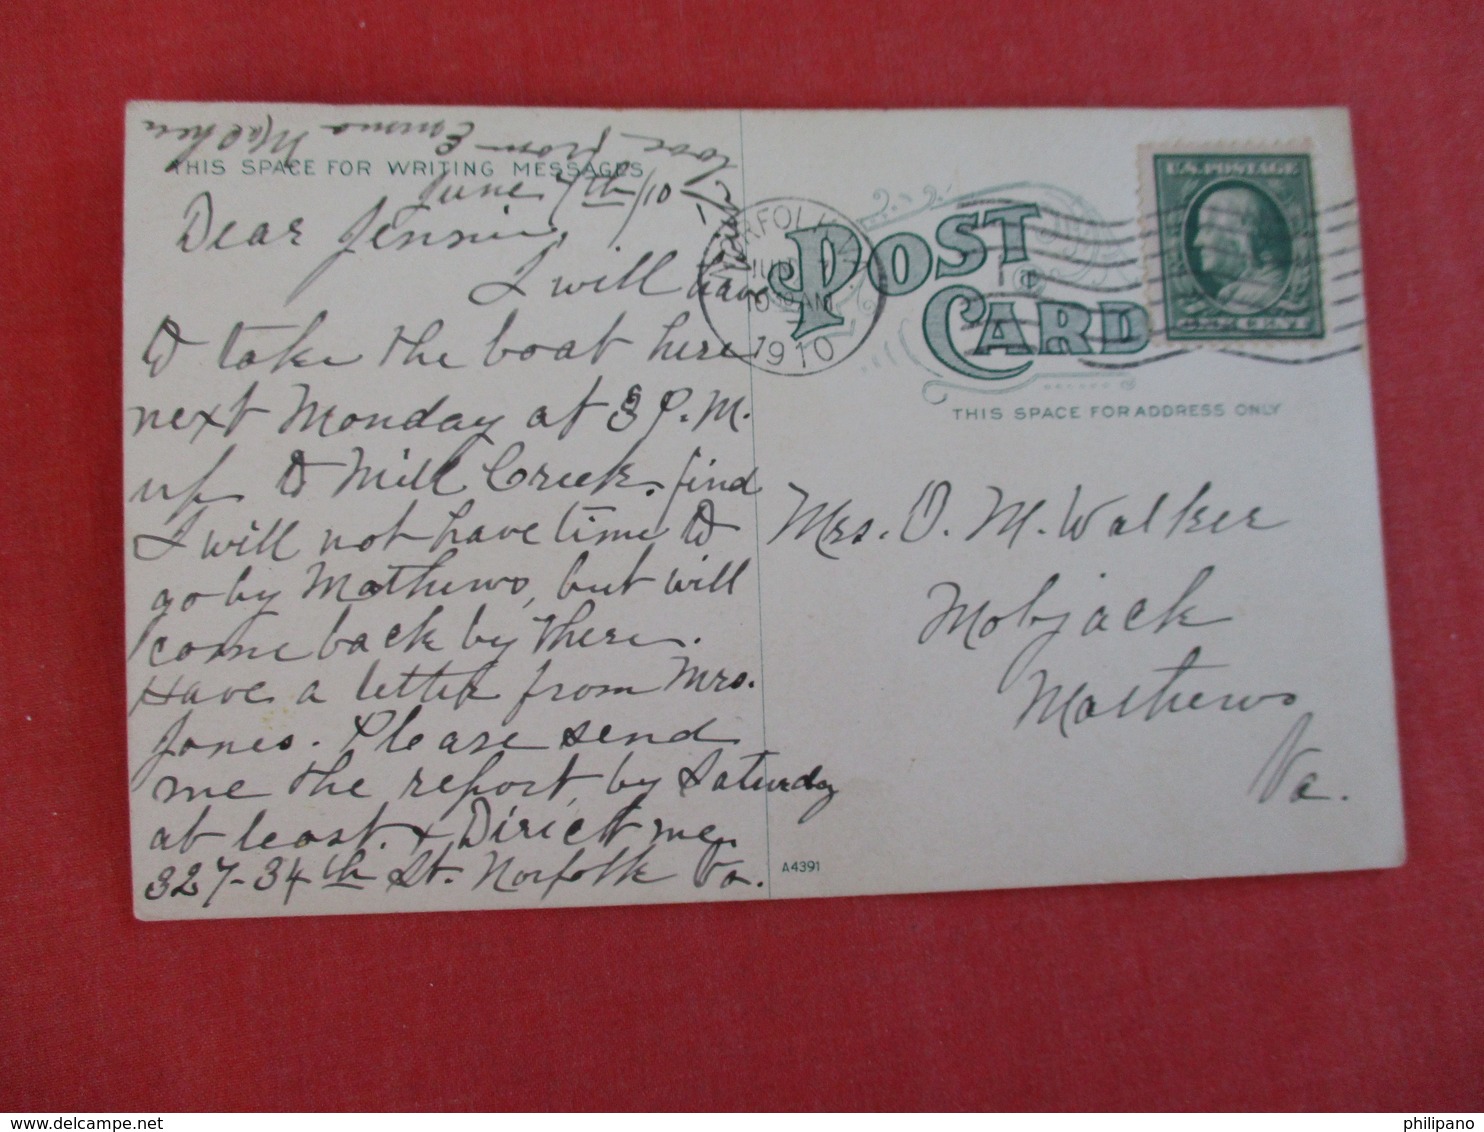 THIS SPACE FOR WRITING MESSAGES
June 7th/10
Dear Jennie,
I will have
to take the boat here
next Monday at 3 P.M.
up to Mill Creek, find
I will not have time to
go by Mathews, but will
come back by there.
Have a letter from Mrs.
Jones. Please send
me the report, by Saturday
at least. + Direct me,
327-34th St. Norfolk Va.
love from Emma
POST CARD
THIS SPACE FOR ADDRESS ONLY
1910
U.S. POSTAGE
Mrs. O. M. Walker
Mobjack
Mathews
Va.
A4391
philipano